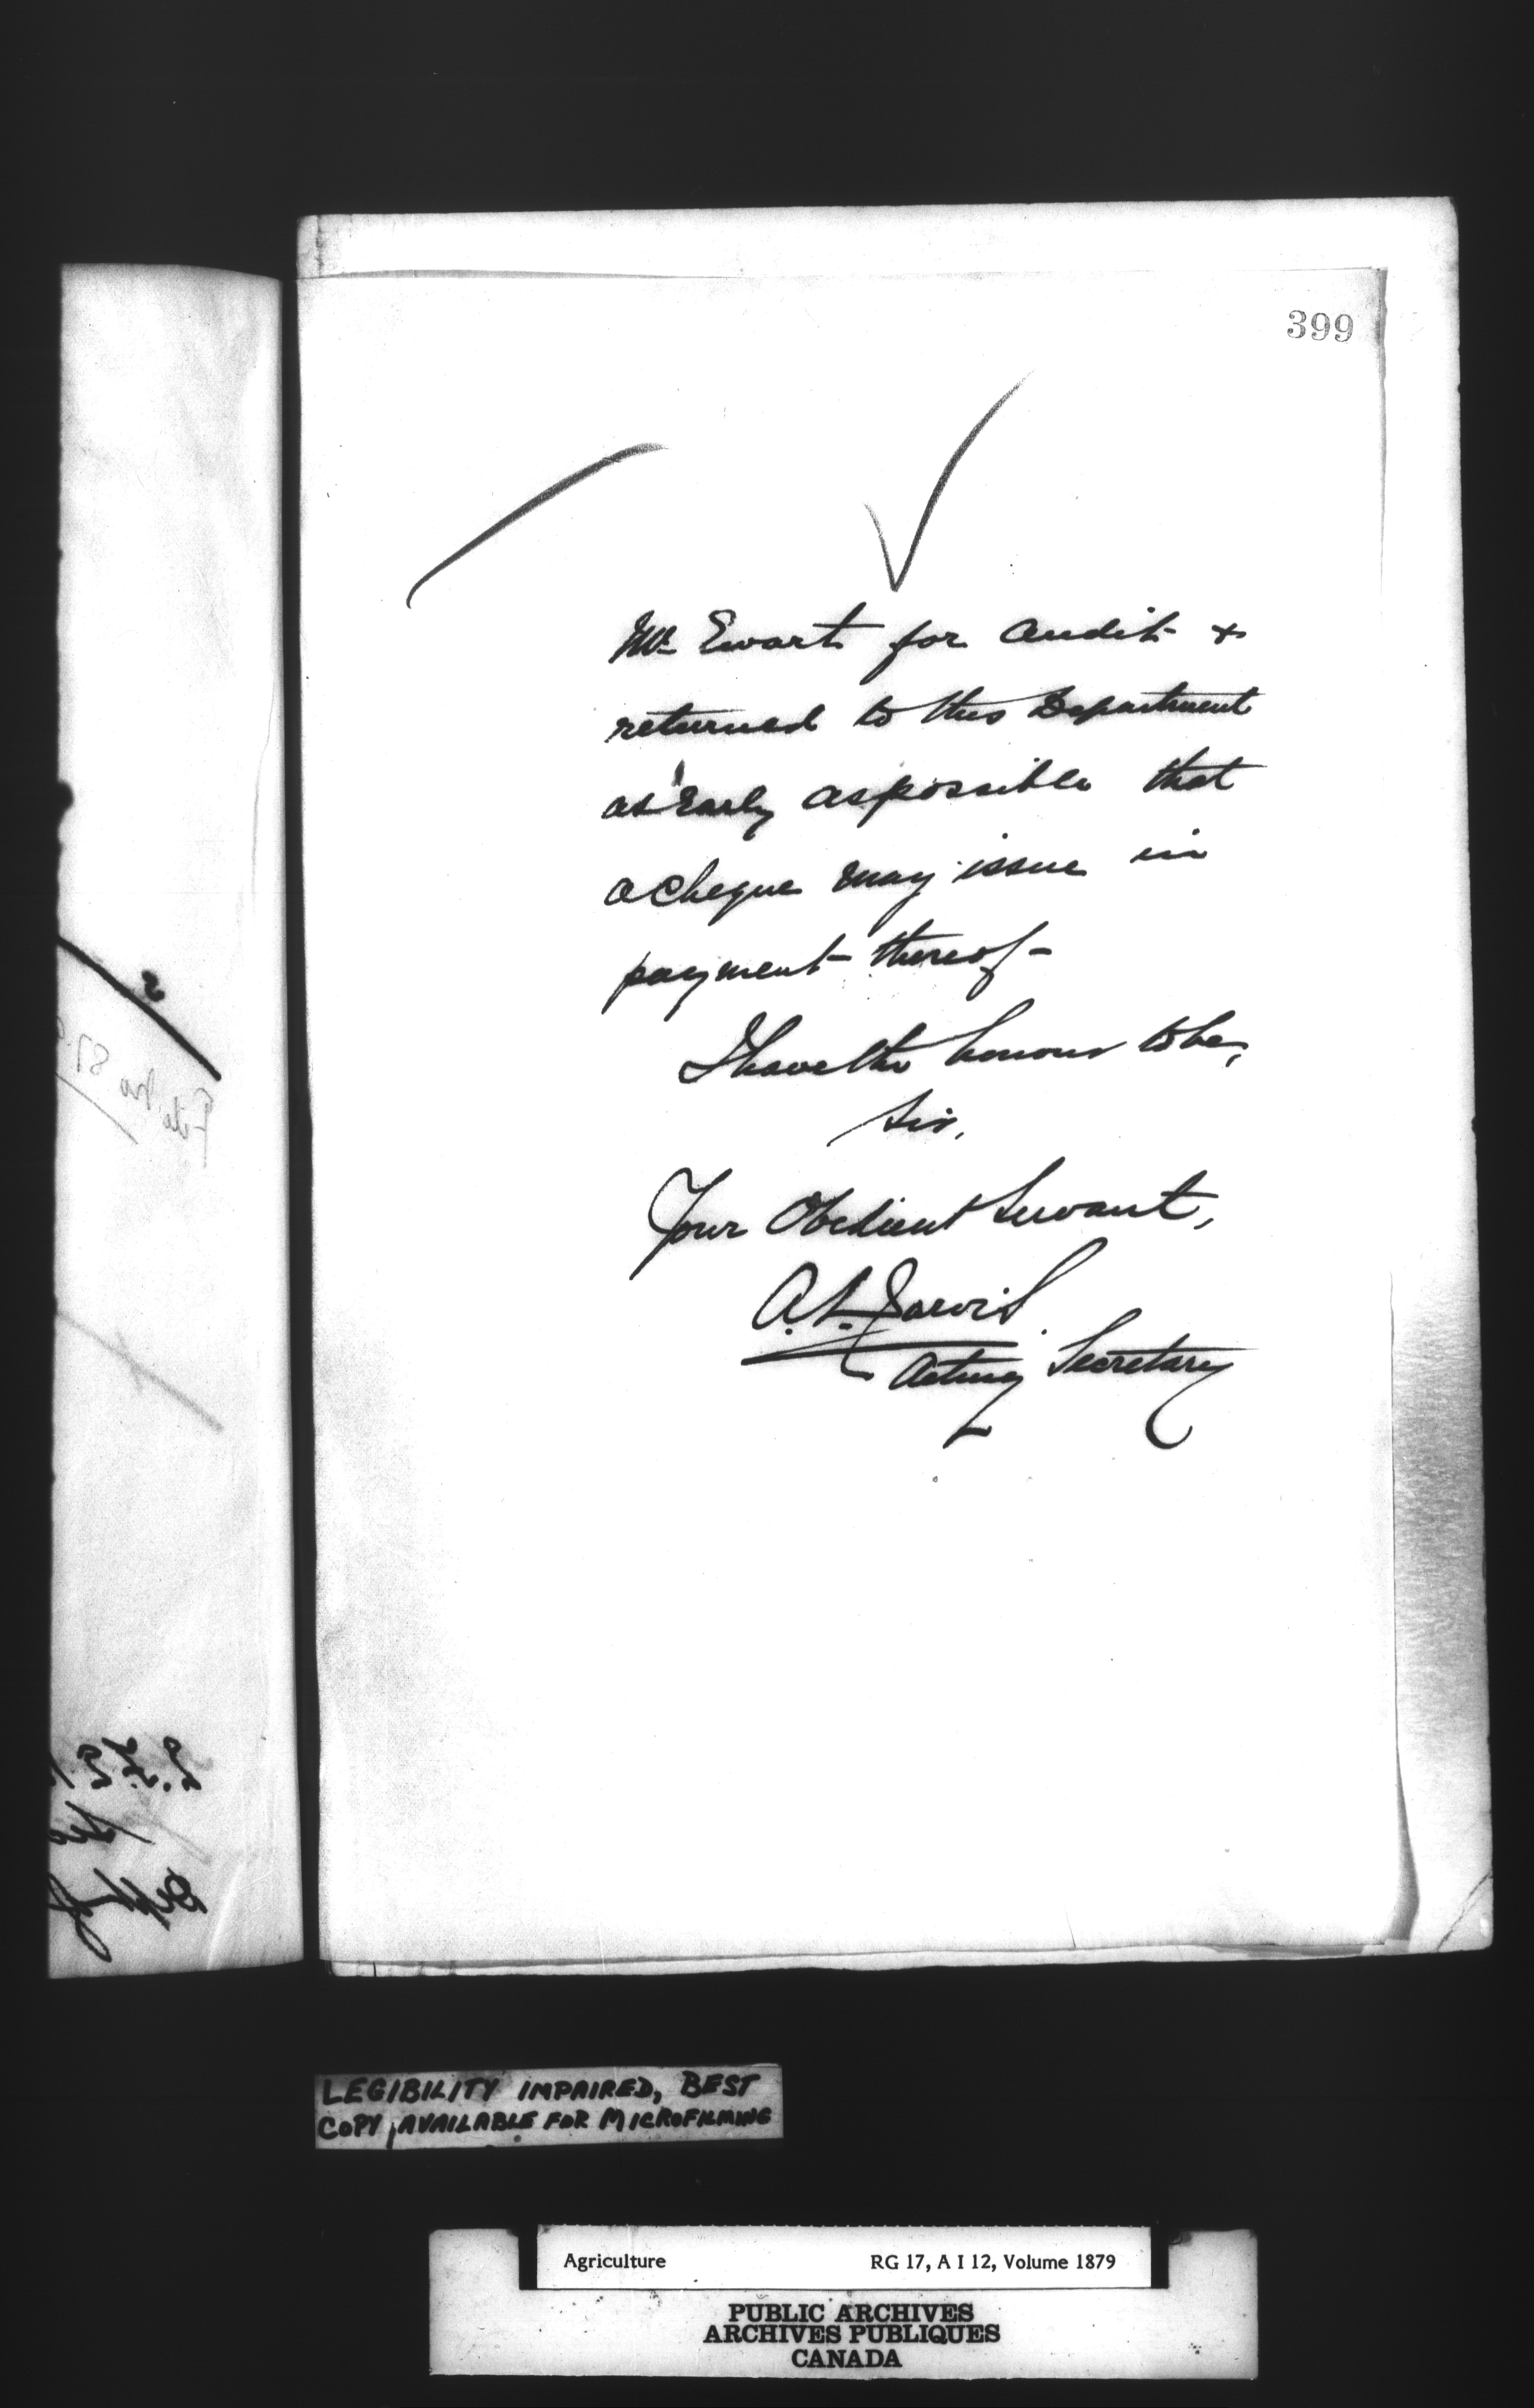 399
Mr Ewart for audit &
returned to this Department
as early as possible that
a cheque may issue in
payment thereof-
I have the honour to be,
Sir,
Your Obedient Servant,
A. L. Jarvis
Acting Secretary
File No 87
LEGIBILITY IMPAIRED, BEST
COPY AVAILABLE FOR MICROFILMING
Agriculture RG 17, A I 12, Volume 1879
PUBLIC ARCHIVES
ARCHIVES PUBLIQUES
CANADA